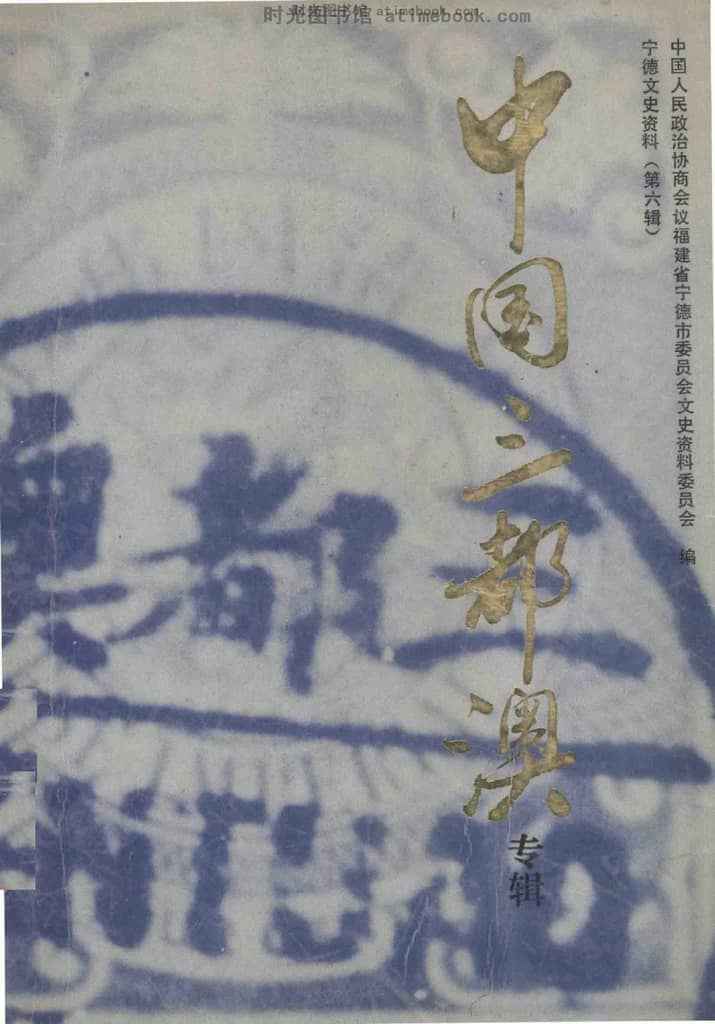 时光图书馆 atimebook.com
时光图书馆 atimebook.com
中国人民政治协商会议福建省宁德市委员会文史资料委员会 编
宁德文史资料（第六辑）
中国三都澳
专辑
三都澳
NTU